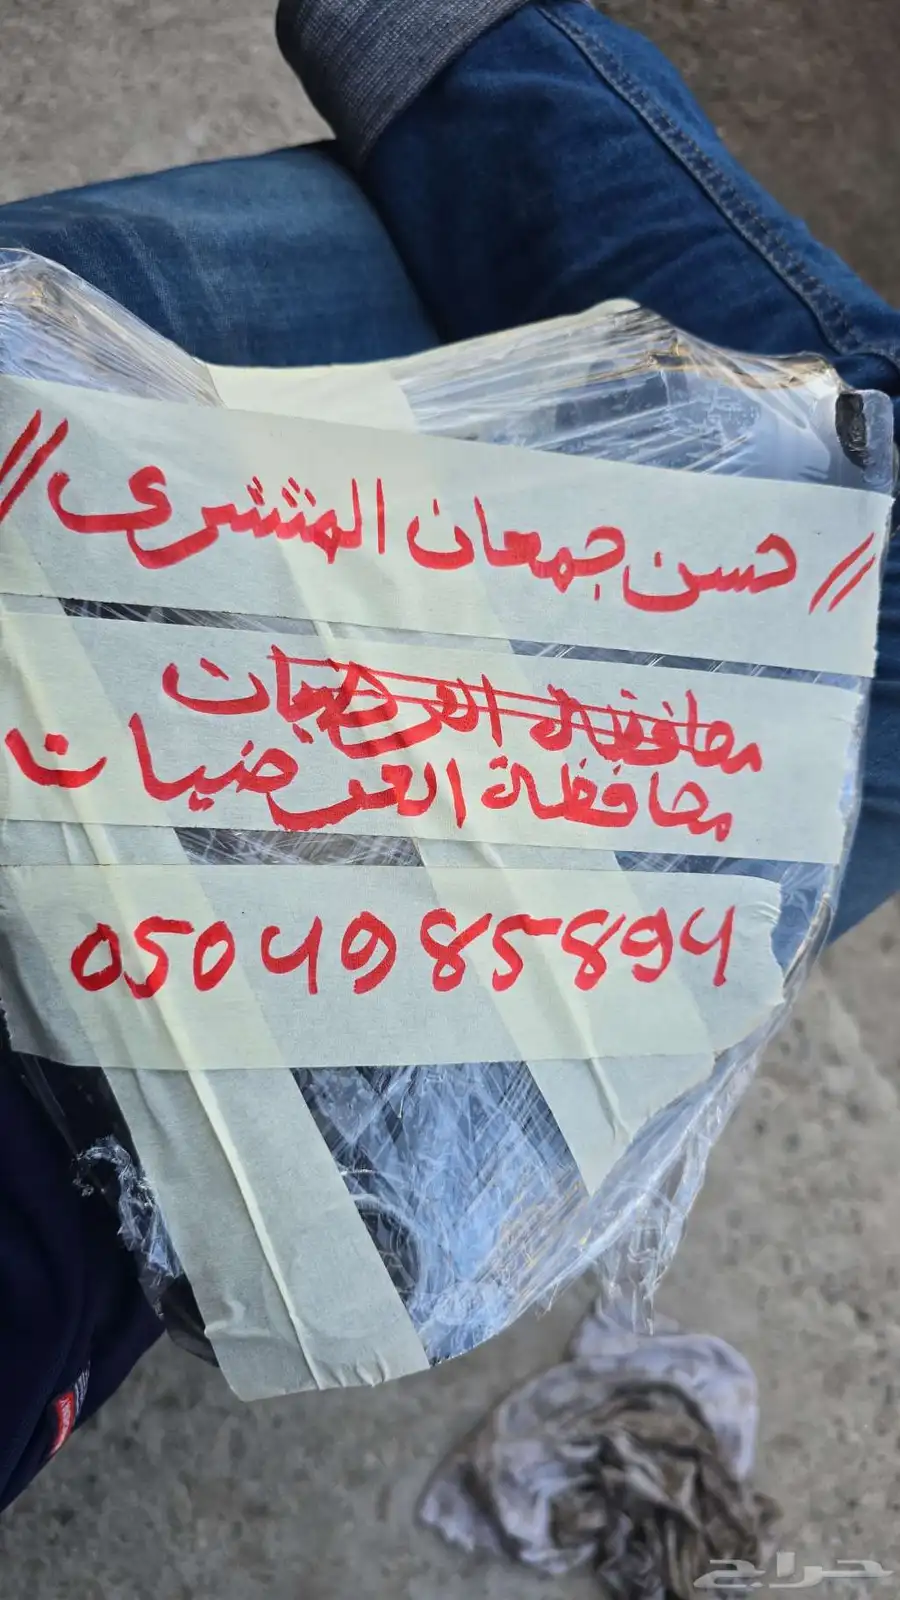 // حسن جمعان المنتشرى //
محافظة العرضيات
محافظة العرضيات
0504985894
حراج